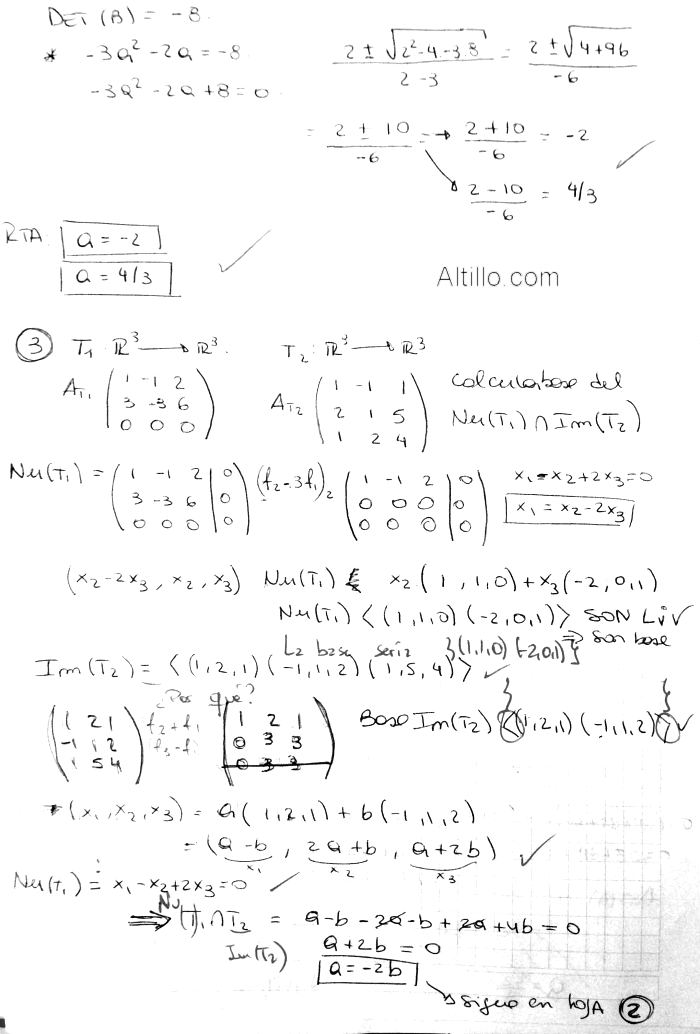 DET (B) = -8
* -3a² - 2a = -8
-3a² - 2a + 8 = 0
2 ± √(2² - 4 · -3 8) / 2 · -3 = 2 ± √(4 + 96) / -6
= 2 ± 10 / -6 → 2 + 10 / -6 = -2
2 - 10 / -6 = 4/3 ✓
RTA: a = -2
a = 4/3 ✓
Altillo.com
③ T₁ ℝ³ → ℝ³. T₂: ℝ³ → ℝ³
A_T₁ (1 -1 2
3 -3 6
0 0 0)
A_T₂ (1 -1 1
2 1 5
1 2 4)
Calcular base del
Nu(T₁) ∩ Im(T₂)
Nu(T₁) = (1 -1 2 | 0
3 -3 6 | 0
0 0 0 | 0)
(f₂-3f₁)₂ (1 -1 2 | 0
0 0 0 | 0
0 0 0 | 0)
x₁ - x₂ + 2x₃ = 0
x₁ = x₂ - 2x₃
(x₂ - 2x₃, x₂, x₃) Nu(T₁) x₂ (1, 1, 0) + x₃ (-2, 0, 1)
Nu(T₁) <(1,1,0) (-2,0,1)> SON LIV
⇒ son base
La base seria {(1,1,0) (-2,0,1)}
Im(T₂) = <(1,2,1) (-1,1,2) (1,5,4)> ✓
¿Por qué?
(1 2 1
-1 1 2
1 5 4)
f₂+f₁
f₃-f₁
(1 2 1
0 3 3
0 3 3)
Base Im(T₂) {<(1,2,1) (-1,1,2)>} ✓
* (x₁, x₂, x₃) = a(1,2,1) + b(-1,1,2)
= (a-b, 2a+b, a+2b) ✓
x₁ x₂ x₃
Nu(T₁) = x₁ - x₂ + 2x₃ = 0 ✓
Nu
⇒ T₁ ∩ T₂ = a - b - 2a - b + 2a + 4b = 0
Im(T₂) a + 2b = 0
a = -2b
↳ sigue en hoja ②